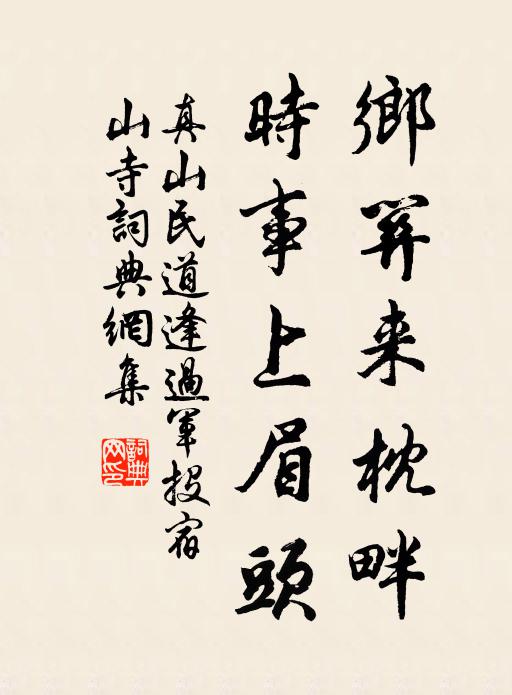 鄉關来枕畔
時事上眉頭
真山民道逢過軍投宿
山寺詞典網集
詞典網印